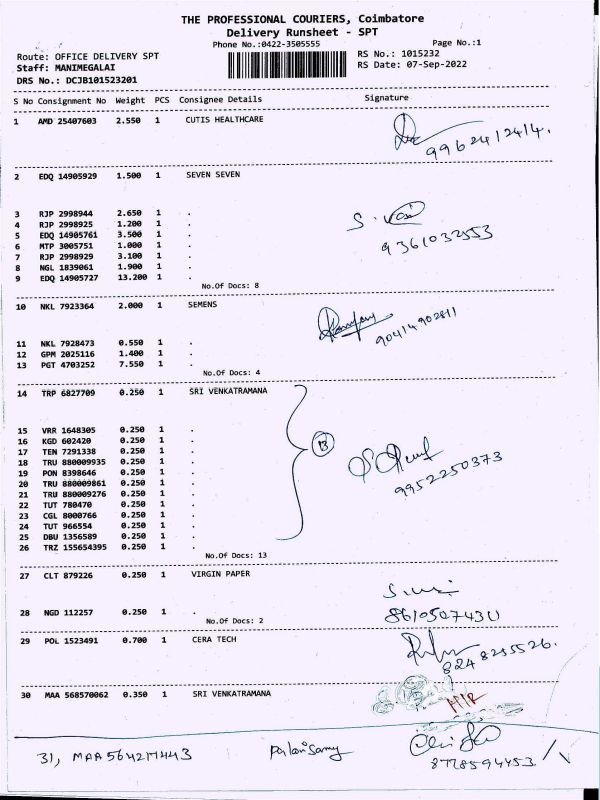 THE PROFESSIONAL COURIERS, Coimbatore
Delivery Runsheet - SPT
Phone No.:0422-3505555 Page No.:1
Route: OFFICE DELIVERY SPT RS No.: 1015232
Staff: MANIMEGALAI RS Date: 07-Sep-2022
DRS No.: DCJB101523201
S No Consignment No Weight PCS Consignee Details Signature
1 AMD 25407603 2.550 1 CUTIS HEALTHCARE
9962412414.
2 EDQ 14905929 1.500 1 SEVEN SEVEN
3 RJP 2998944 2.650 1 .
4 RJP 2998925 1.200 1 .
5 EDQ 14905761 3.500 1 .
6 MTP 3005751 1.000 1 .
7 RJP 2998929 3.100 1 .
8 NGL 1839061 1.900 1 .
9 EDQ 14905727 13.200 1 .
9361032553
No.Of Docs: 8
10 NKL 7923364 2.000 1 SEMENS
90414902811
11 NKL 7928473 0.550 1 .
12 GPM 2025116 1.400 1 .
13 PGT 4703252 7.550 1 .
No.Of Docs: 4
14 TRP 6827709 0.250 1 SRI VENKATRAMANA
15 VRR 1648305 0.250 1 .
16 KGD 602420 0.250 1 .
17 TEN 7291338 0.250 1 .
18 TRU 880009935 0.250 1 .
19 PON 8398646 0.250 1 .
20 TRU 880009861 0.250 1 .
21 TRU 880009276 0.250 1 .
22 TUT 780470 0.250 1 .
23 CGL 8000766 0.250 1 .
24 TUT 966554 0.250 1 .
25 DBU 1356589 0.250 1 .
26 TRZ 155654395 0.250 1 .
13
9952250373
No.Of Docs: 13
27 CLT 879226 0.250 1 VIRGIN PAPER
28 NGD 112257 0.250 1 .
No.Of Docs: 2
29 POL 1523491 0.700 1 CERA TECH
8248255526.
30 MAA 568570062 0.350 1 SRI VENKATRAMANA
31, MAA 564217443 Palanisamy
8778594453